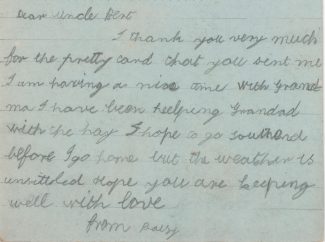 Dear Uncle Bert
I thank you very much
for the pretty card that you sent me
I am having a nice time with Grand
ma I have been helping Grandad
with the hay I hope to go Southend
before I go home but the weather is
unsettled hope you are keeping
well with love
from Daisy